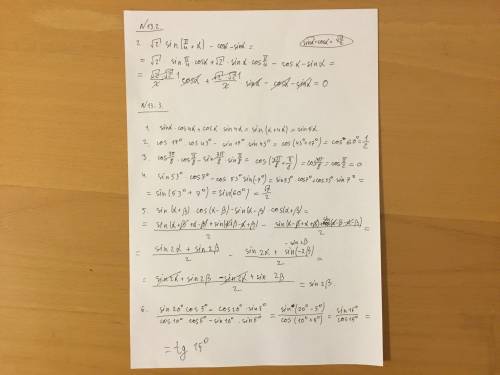 N 13.2.
2. √2 sin(π/4 + α) - cosα - sinα =
= √2 sin π/4 cosα + √2 · sinα cos π/4 - cosα - sinα =
= √2·√2/2 cosα + √2·√2/2 sinα - cosα - sinα = 0
N 13.3.
1. sinα · cos4α + cosα sin4α = sin(α+4α) = sin5α
2. cos 17° cos 43° - sin 17° sin 43° = cos(43°+17°) = cos 60° = 1/2
3. cos 3π/8 · cos π/8 - sin 3π/8 · sin π/8 = cos(3π/8 + π/8) = cos 4π/8 = cos π/2 = 0
4. sin 53° cos 7° - cos 53° sin(-7°) = sin 53° cos 7° + cos 53° sin 7° =
= sin(53° + 7°) = sin(60°) = √3/2
5. sin(α+β) cos(α-β) - sin(α-β) cos(α+β) =
= sin 2α + sin 2β / 2 - sin 2α + sin(-2β) / 2 =
= sin 2α + sin 2β - sin 2α + sin 2β / 2 = sin 2β
6. sin 20° cos 5° - cos 20° sin 5° / cos 10° cos 5° - sin 10° sin 5° = sin(20° - 5°) / cos(10° + 5°) = sin 15° / cos 15° =
= tg 15°